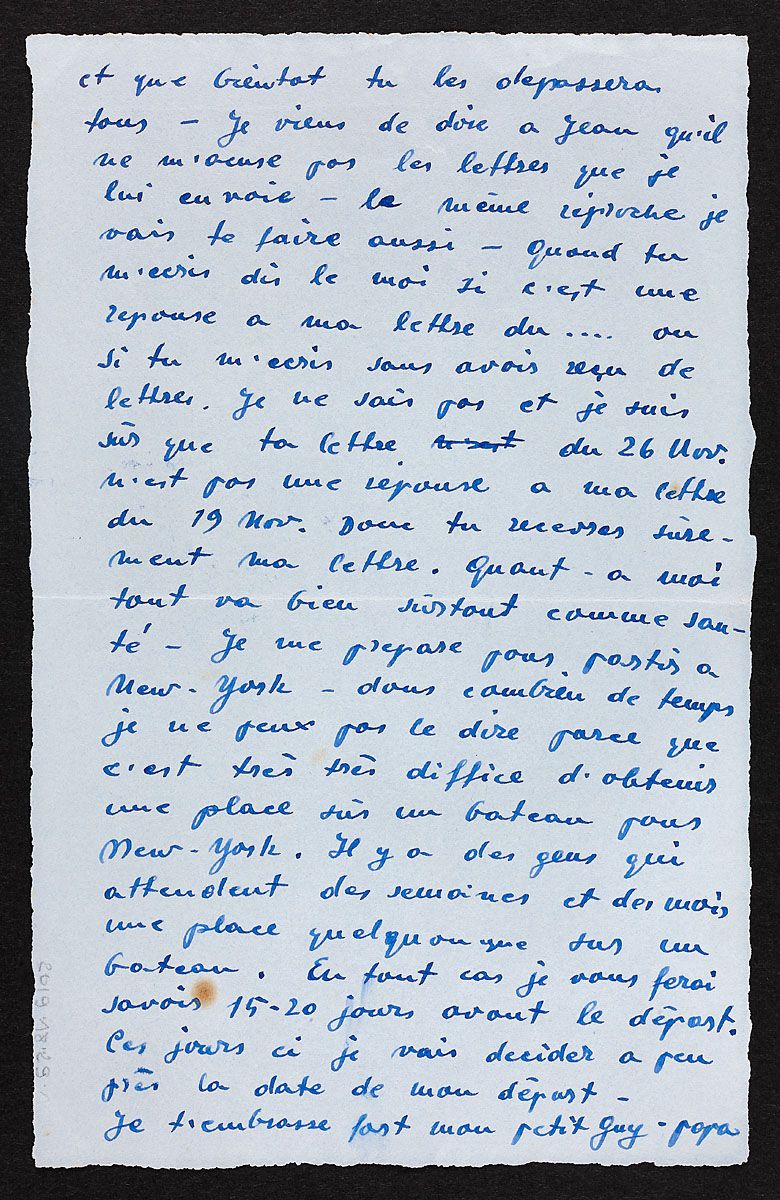 et que bientot tu les depassera
tous – Je viens de dire a Jean qu'il
ne m'acuse pas les lettres que je
lui envoie – le même reproche je
vais te faire aussi – Quand tu
m'ecris dis le moi si c'est une
reponse a ma lettre du .... ou
si tu m'ecris sans avoir reçu de
lettres. Je ne sais pas et je suis
sûr que ta lettre n'est du 26 Nov.
n'est pas une reponse a ma lettre
du 19 Nov. Donc tu recevras sûre-
ment ma lettre. Quant-a moi
tout va bien surtout comme san-
té – Je me prepare pour partir a
New-York – dans combien de temps
je ne peux pas le dire parce que
c'est très très difficè d'obtenir
une place sûr un bateau pour
New-York. Il y a des gens qui
attendent des semaines et des mois
une place quelquonque sur un
bateau. En tout cas je vous ferai
savoir 15-20 jours avant le départ.
Ces jours ci je vais decider a peu
près la date de mon départ –
Je t'embrasse fort mon petit Guy - papa